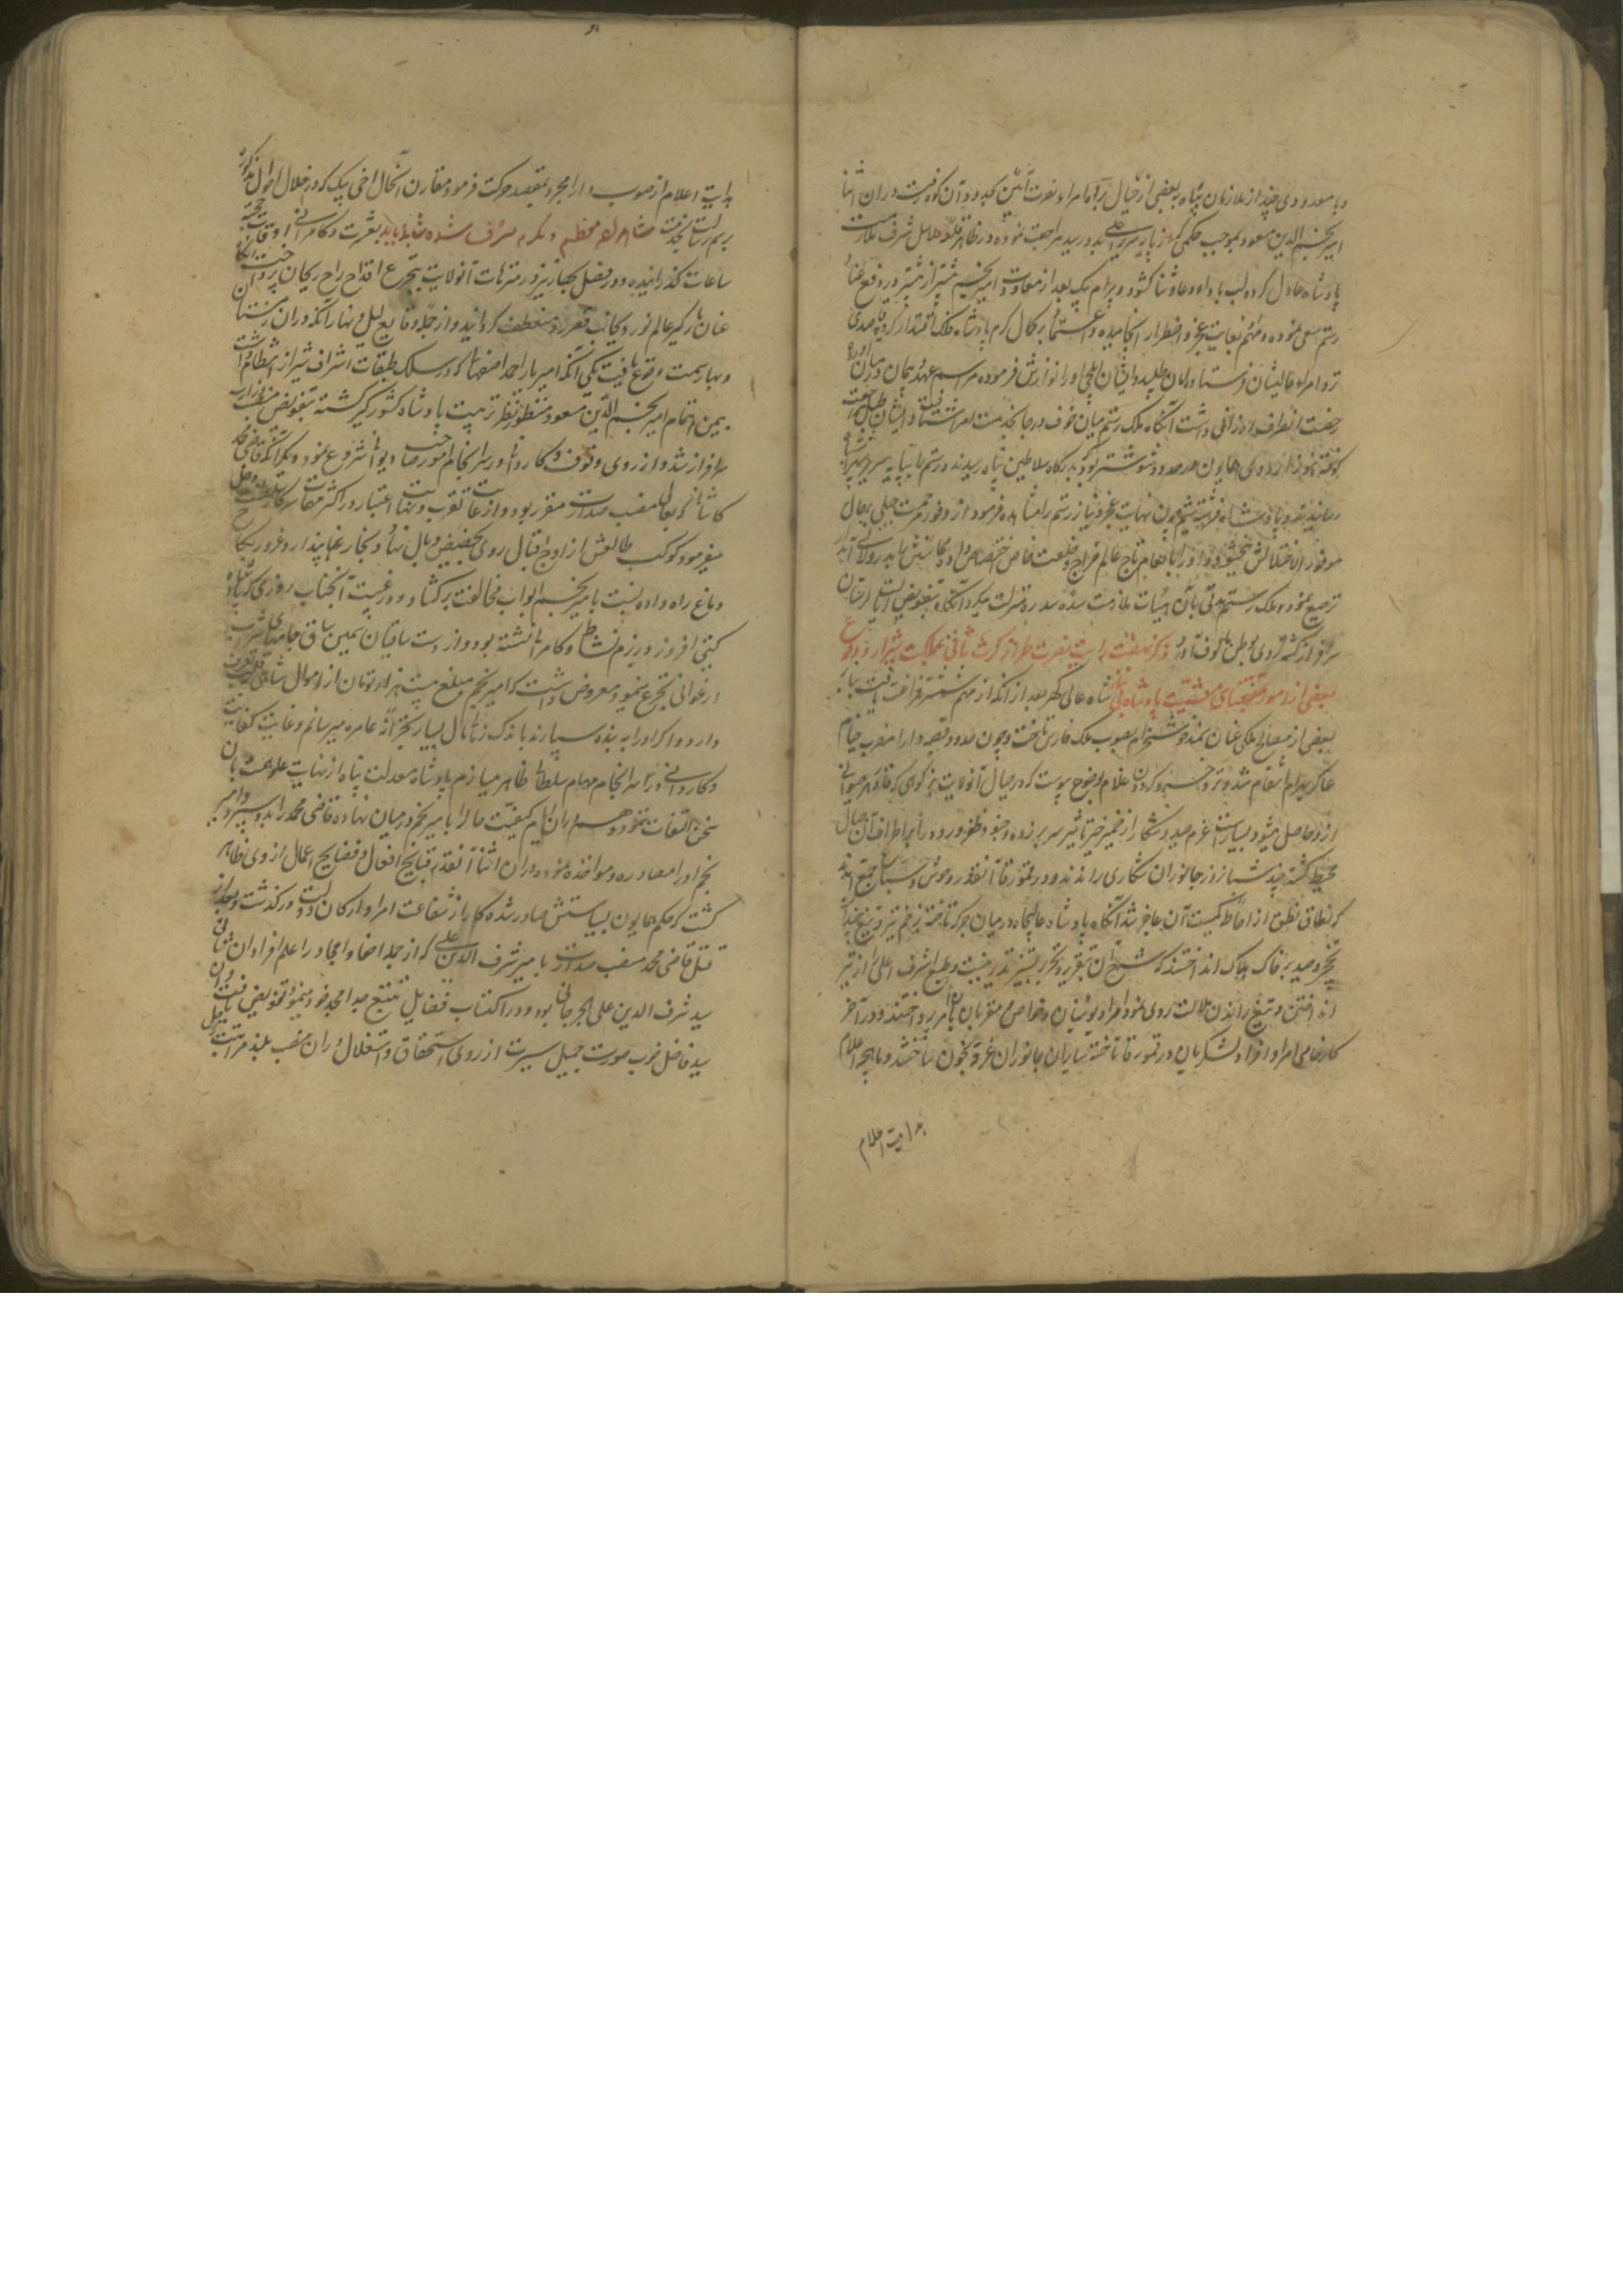 و با معدودی چند از ملازمان پناه به بعضی از جبال برد و امراء نصرت آئین در آن اثنا
امیر نجم الدین مسعود بموجب حکمی که از پایه سریر اعلی بدو رسید مراجعت نموده در ظاهر شرف ملازمت
پادشاه عادل کرده لب بادای دعا و ثنا کشود و بیرام بیک بعد از معاودت امیر نجم بیشتر از پیشتر در دفع
رستم سعی نموده و مهم بغایت عجز و اضطرار انجامیده و بر کمال کرم پادشاه فلک اقتدار کرده قاصدی
نزد امراء عالیشان فرستاد و امان طلبید و ایشان ایلچی او را نوازش فرموده مراسم عهد و پیمان در میان آورده
رخصت انصراف ارزانی داشت آنگاه ملک رستم میان خوف و رجا بخدمت امرا شتافت و ایشان طبل مراجعت
کوفته اردوی همایون در حدود شوشتر بود بدرگاه سلاطین پناه رسیدند و رستم را بپایه سریر
رسانیدند و پادشاه چون نهایت عجز و نیاز رستم را مشاهده فرمود از وفور مرحمت جبلی بحال
او را بانعام تاج و خلعت خاص اختصاص داد
ترصیع نموده ملک رستم مدتی بآن هیات ملازمت سده سدره منزلت میکرد آنگاه بتفویض ایالت لرستان
سرافراز گشته روی بوطن مالوف آورد ذکر نهضت رایت نصرت طراز کرت ثانی بمملکت شیراز و وقوع
بعضی از امور بمقتضای مشیت پادشاه بی نیاز شاه عالی گهر بعد از آنکه از مهم شوشتر فراغت یافت بنابر
بعضی از مصالح ملکی عنان سمند خوشخرام بصوب ملک فارس تافت و چون حدود قصبه دارا مضرب خیام
عساکر بهرام انتقام شد بوضوح پیوست که در جبال آنولایت بز کوهی که فادزهر حیوانی
ازو حاصل میشود بسیارست عزم صید و شکار از ضمیر خیر تاثیر سر بر زده جنود ظفر ورود را بر اطراف آن جبال
محیط گشته چند شبانروز جانوران شکاری راندند و در قمورقا آنقدر وحوش و سباع مجتمع آمدند
که نطاق نطق از احاطه کمیت آن عاجز شد آنگاه پادشاه عالیجاه در میان جرگه تاخته بزخم تیر و تیغ چندان
نخجیر و صید بر خاک هلاک انداختند که شرح آن بتقریر و تحریر تیسیر پذیر نیست و طبع اشرف اعلی از تیر
انداختن و تیغ راندن ملالت روی نمود امرا و نوئینان و خواص و مقربان بآن امر پرداختند و در آخر
کار تمامی امرا و افراد لشکریان در قمورقا تاخته سایر آن جانوران غرقه بخون ساختند و ماهچه اعلام
هدایت اعلام
هدایت اعلام از صوب دارابجرد بمقصد حرکت فرمود مقارن آنحال اخی بیک که در خلال احوال مذکوره
برسم رسالت بخدمت رفته بود معظم و مکرم مشرف شده بعشرت و کامرانی اوقات خجسته
ساعات گذرانیده در فصل بهار نیز در متنزهات آنولایت بتجرع اقداح راح ریحان پرداخت آنگاه
عنان بارگیر عالم نورد بجانب قصر زرد منعطف گردانید و از جمله وقایع لیل و نهار آنکه در آن زمستان
و بهار سمت وقوع یافت یکی آنکه امیر یار احمد اصفهانی که در سلک طبقات اشراف شیراز انتظام داشت
بیمن اهتمام امیر نجم الدین مسعود منظور نظر تربیت پادشاه کشورگیر گشته بتفویض منصب وزارت
سرافراز شد و از روی وقوف و کاردانی در سرانجام امور دیوانی شروع نمود دیگر آنکه قاضی محمد
کاشانی که بعالی منصب صدارت مقرر بود و از غایت تقرب و نهایت اعتبار در اکثر مهمات سرکار سلطنت دخل
میفرمود کوکب طالعش از اوج اقبال روی بحضیض وبال نهاد و بخار پندار و غرور بکاخ
دماغ راه داده نسبت بامیر نجم ابواب مخالفت برکشاد و در غیبت آنجناب روزی که پادشاه
گیتی افروز در بزم نشاط و کامرانی نشسته بود و از دست ساقیان سیمین ساق جامهای شراب
ارغوانی تجرع مینمود معروض داشت که امیر نجم مبلغ بیست هزار تومان از اموال شاهی
دارد و اگر او را به بنده سپارند باندک زمانی مال بسیار بخزانه عامره میرسانم و غایت کفایت
و کاردانی در سرانجام مهام سلطانی ظاهر میسازم پادشاه معدلت پناه از نهایت علو همت بآن
سخن التفات ننمود و هم در آن ایام کیفیت حال را با امیر نجم در میان نهاده قاضی محمد را بدو سپرد و امیر
نجم او را مصادره و مواخذه نموده در آن اثنا آنقدر قبایح افعال و فضایح اعمال از وی ظاهر
گشت که حکم همایون بسیاستش صادر شده کار از شفاعت امرا و ارکان دولت در گذشت و بعد از
قتل قاضی محمد منصب صدارت بامیر شرف الدین علی که از جمله احفاد امجاد را علم افراد انسانی
سید شرف الدین علی الجرجانی بود و در اکتساب فضایل تتبع جد امجد خود مینمود تفویض یافت و آن
سید فاضل خوب صورت جمیل سیرت از روی استحقاق و استقلال در آن منصب بلند مرتبت